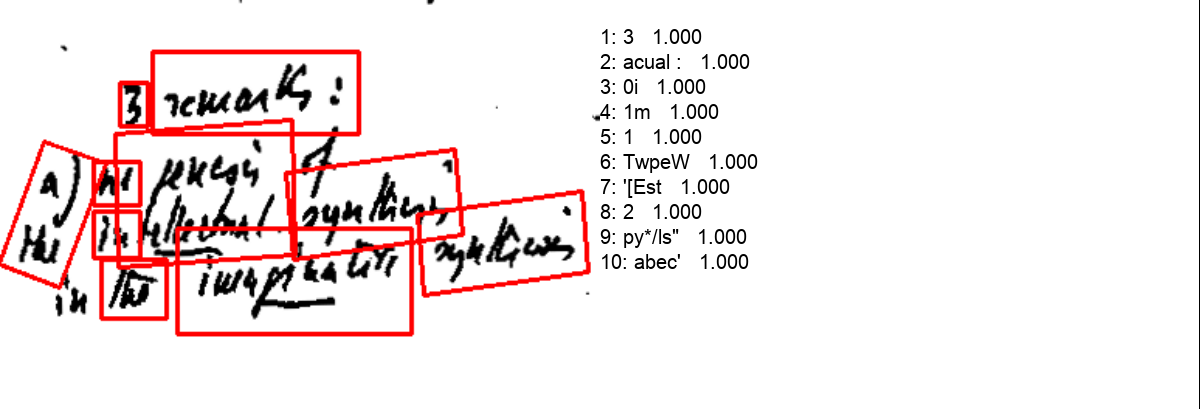 3 remarks :
a) in
the in intellectual synthesis synthesis
in the imagination
1: 3 1.000
2: acual : 1.000
3: 0i 1.000
4: 1m 1.000
5: 1 1.000
6: TwpeW 1.000
7: '[Est 1.000
8: 2 1.000
9: py*/ls" 1.000
10: abec' 1.000